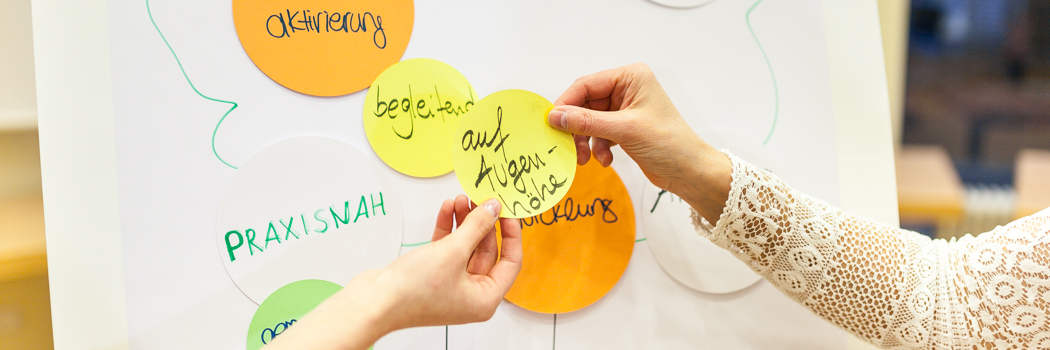 aktivierung
begleitend
auf
Augen-
höhe
PRAXISNAH